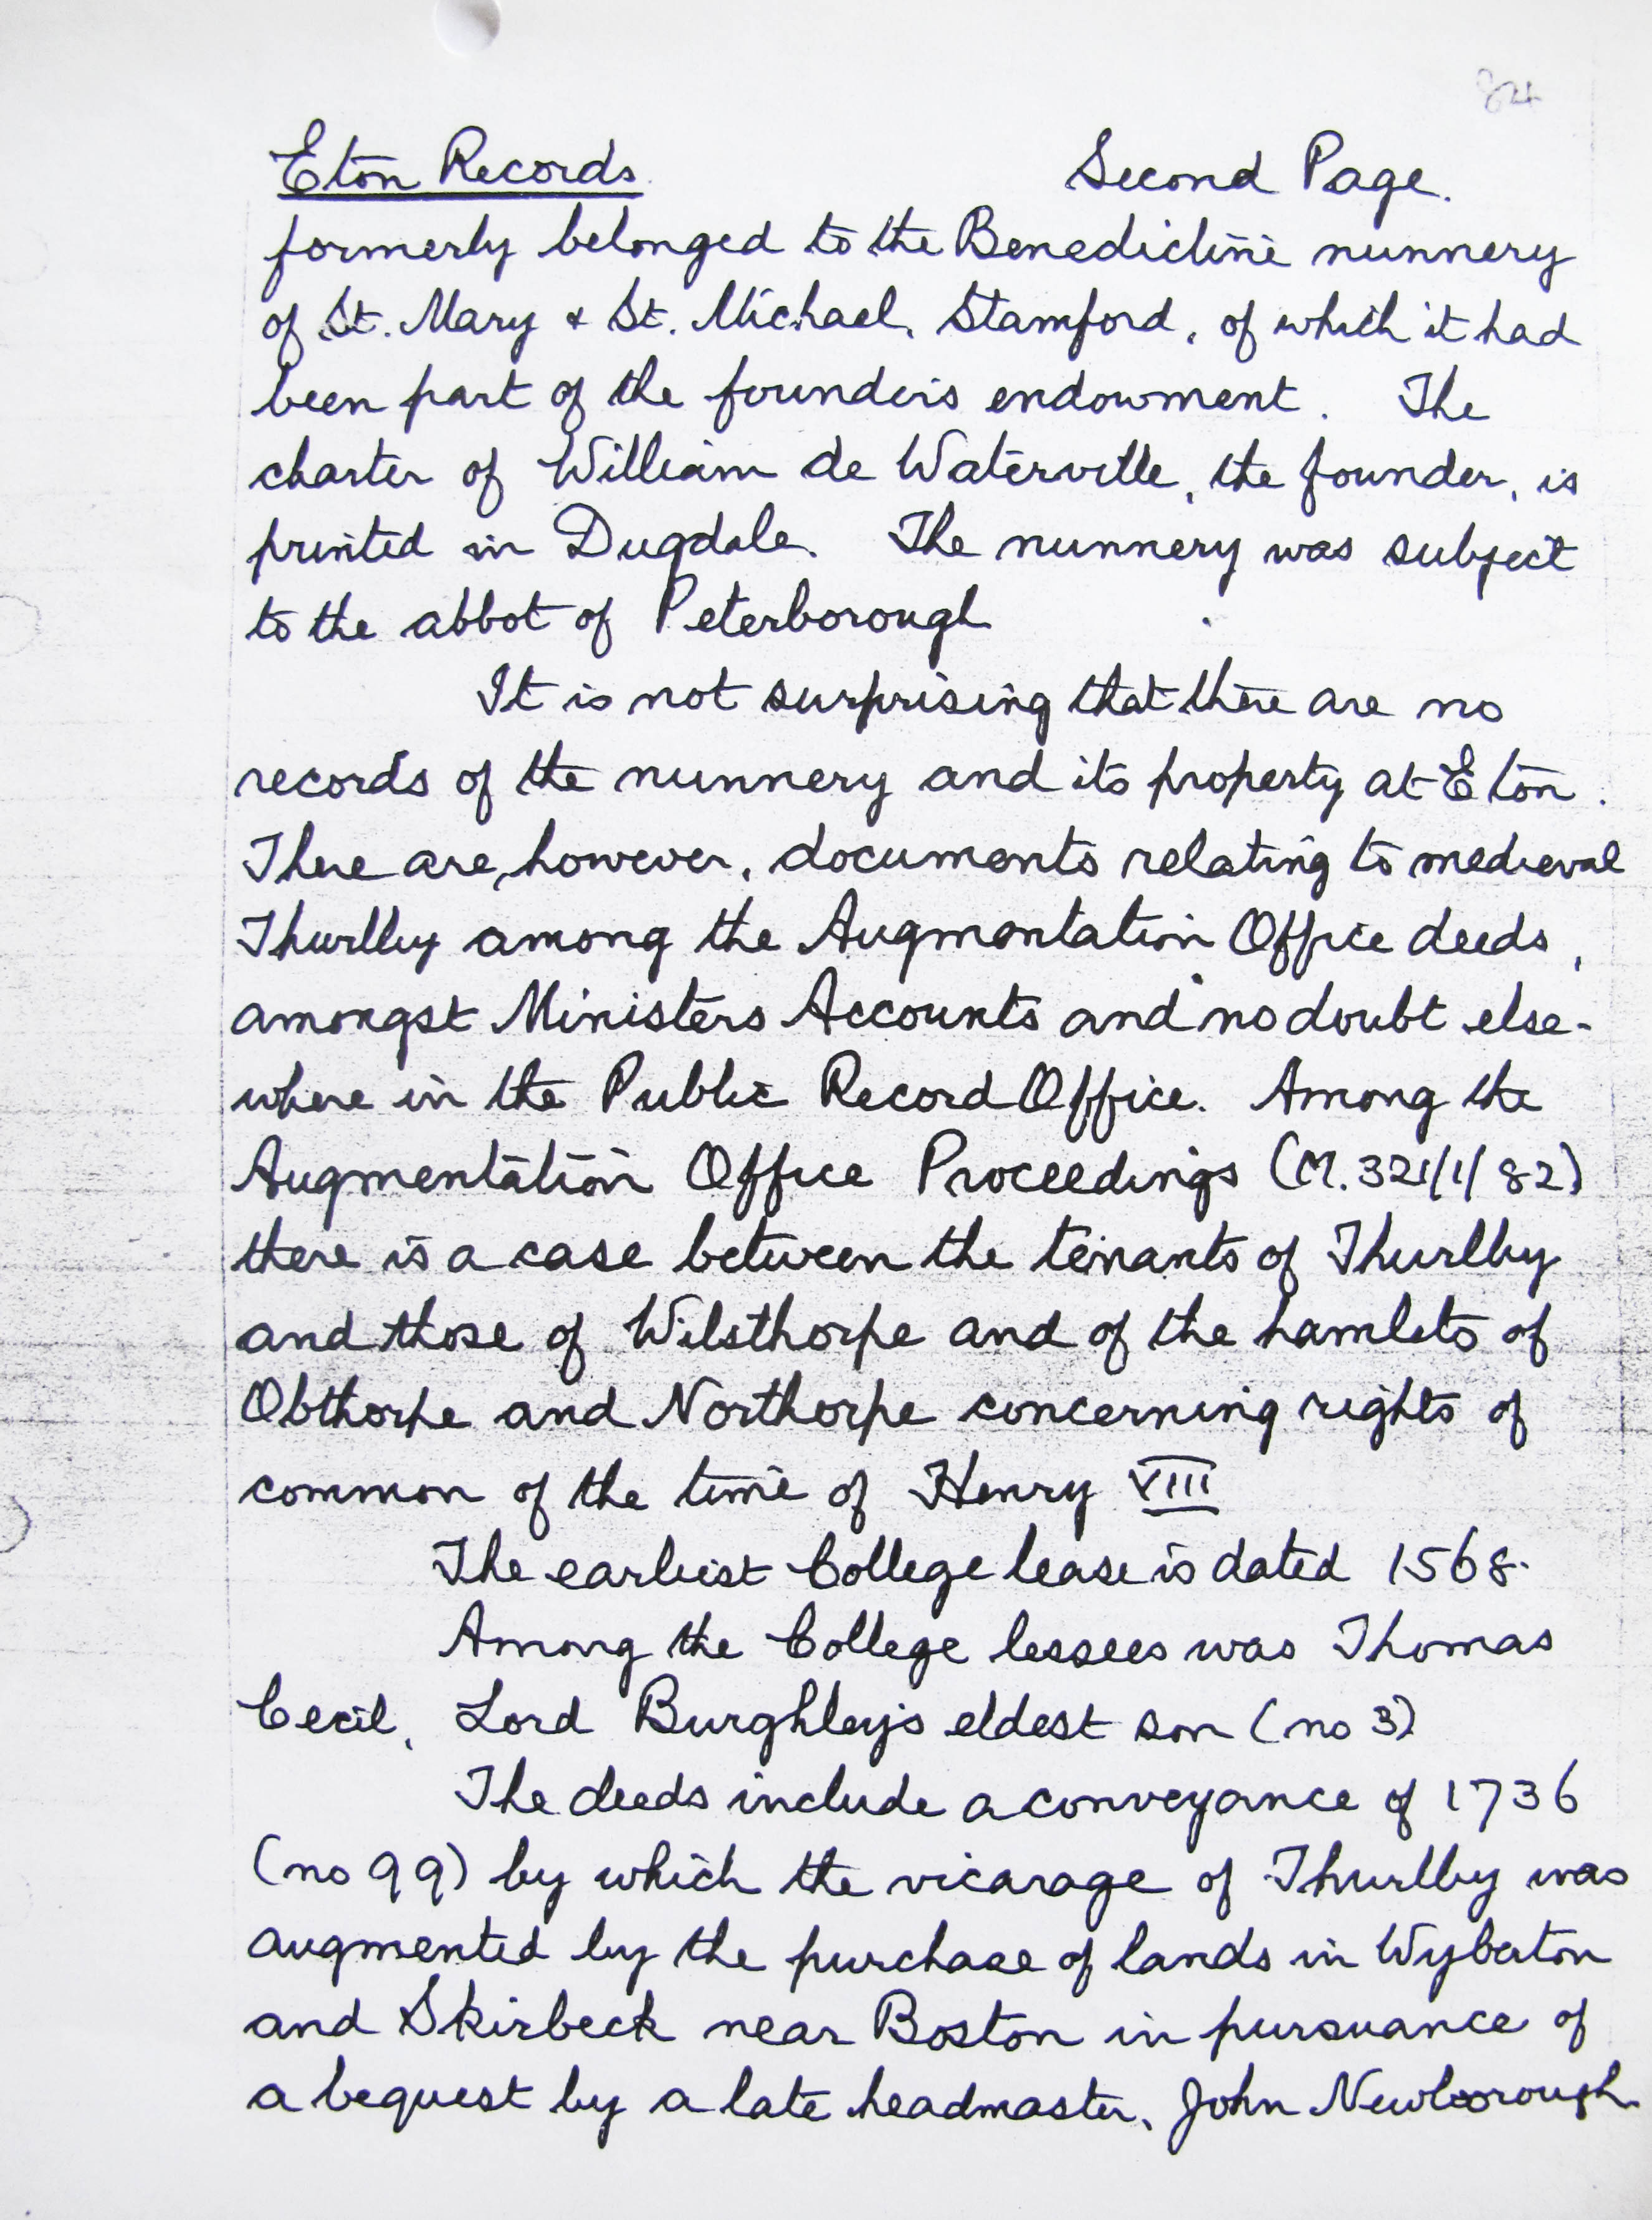 84
Eton Records. Second Page.
formerly belonged to the Benedictine nunnery
of St. Mary & St. Michael, Stamford, of which it had
been part of the founders endowment. The
charter of William de Waterville, the founder, is
printed in Dugdale. The nunnery was subject
to the abbot of Peterborough
It is not surprising that there are no
records of the nunnery and its property at Eton.
There are, however, documents relating to medieval
Thurlby among the Augmentation Office deeds,
amongst Ministers Accounts and no doubt else-
where in the Public Record Office. Among the
Augmentation Office Proceedings (M.321/1/82)
there is a case between the tenants of Thurlby
and those of Wilsthorpe and of the hamlets of
Obthorpe and Northorpe concerning rights of
common of the time of Henry VIII
The earliest College lease is dated 1568.
Among the College lessees was Thomas
Cecil, Lord Burghley's eldest son (no 3)
The deeds include a conveyance of 1736
(no 99) by which the vicarage of Thurlby was
augmented by the purchase of lands in Wyberton
and Skirbeck near Boston in pursuance of
a bequest by a late headmaster, John Newborough.